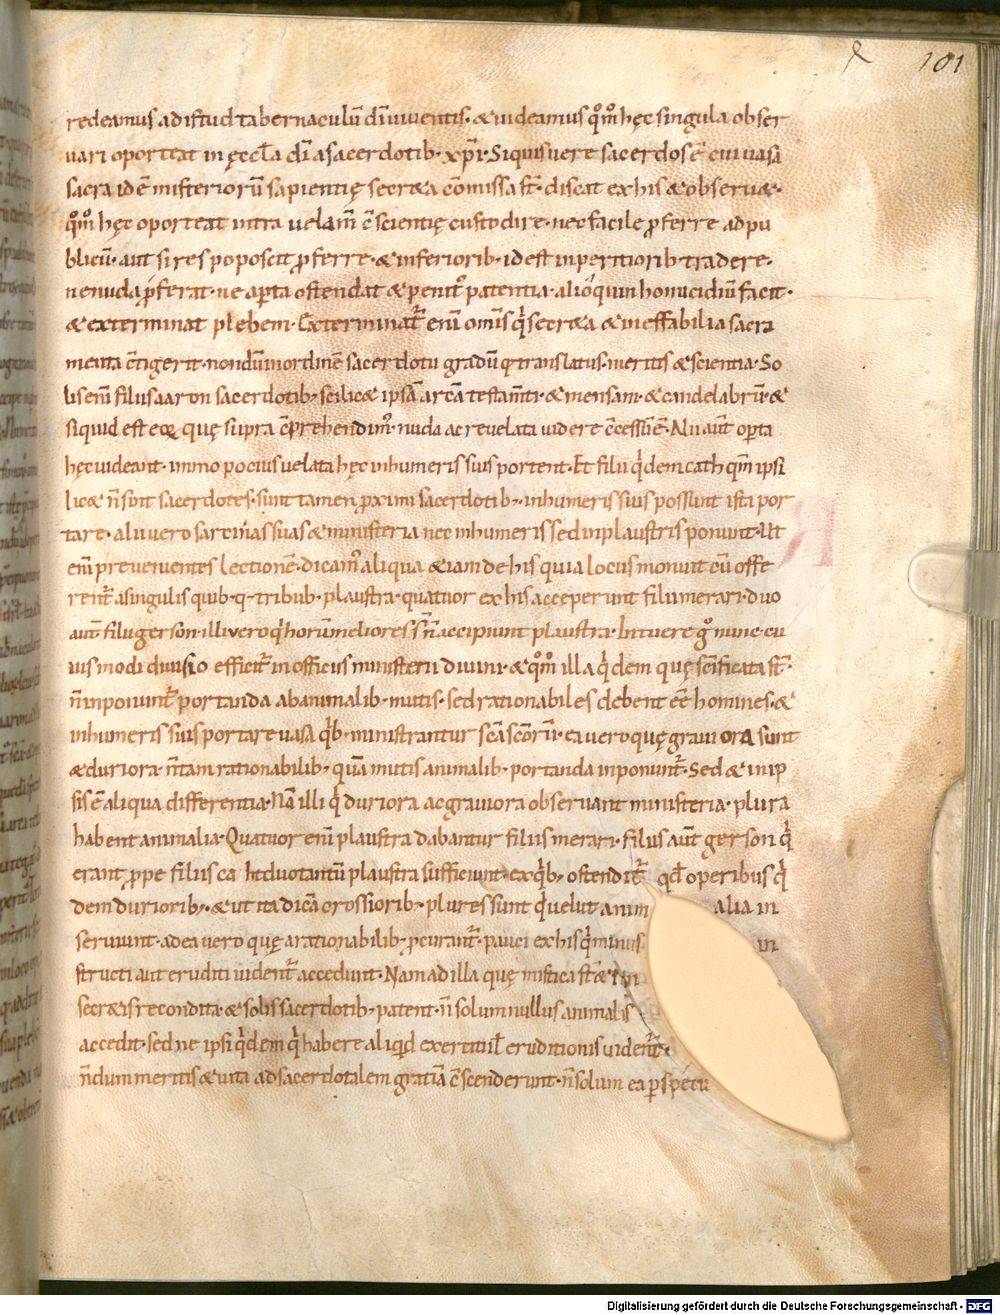 101
redeamus ad istud tabernaculū dī uiuentis· & uideamus qm̄o hęc singula obser
uari oporteat in ęccła dī a sacerdotib· xp̄i· Siquis uere sacerdos ē cui uasa
sacra id ē misteriorū sapientię secr&a cōmissa st̄· discat ex his & obseru&·
qm̄o hęc oporteat intra uelam̄ c̄scientię custodire· nec facile p̄ferre ad pu
blicū· aut si res poposcit p̄ferre· & inferiorib· id est inperitiorib· tradere·
ne nuda p̄ferat· ne apta ostendat & penit᾽ patentia· alioquin homicidiū facit·
& exterminat plebem· Exterminat̄ enī omīs qi secr&a & ineffabilia sacra
menta c̄tigerit· nondū in ordinē sacerdotii gradū q· translatus· meritis & scientia· So
lis enī filiis aaron sacerdotib; scilic& ipsā arcā testam̄ti· & mensam· & candelabrū· &
siquid est eoꝝ quę supra c̄prehendim᾽· nuda ac reuelata uidere c̄cessū ē· Alii aūt opta
hęc uideant· immo pocius uelata hęc in humeris suis portent· Et filii qidem cath qm̄ ipsi
lic& n̄ sint sacerdotes· sunt tamen pximi sacerdotib; in humeris suis possunt ista por
tare· alii uero sarcinas suas & ministeria nec in humeris sed in plaustris ponunt· Ut
enī preuenientes lectionē dicam᾽ aliqua & iam de his quia locus monuit cū offe
rent̄ a singulis quib· q· tribub· plaustra· quatuor ex his acceperunt filii merari· duo
aūt filii gerson· illi uero qi horum meliores s̄ n̄ accipiunt plaustra· Intuere go nunc cu
iusmodi diuisio efficit̄ in officiis ministerii diuini· & qm̄o illa qidem quę sc̄ificata st̄·
n̄ inponunt̄ portanda ab animalib· mutis· sed rationabiles debent eē homines· &
in humeris suis portare uasa qib· ministrantur sc̄a sc̄orū· ea uero quę grauiora sunt
& duriora· n̄ tam rationabilib· quā mutis animalib· portanda inponunt̄· Sed & in ip
sis ē aliqua differentia· Nā illi qi duriora ac grauiora obseruant ministeria· plura
habent animalia· Quatuor enī plaustra dabantur filiis merari· filiis aūt gerson qi
erant ppe filiis caht duo tantū plaustra sufficiunt· ex qib; ostendit̄ qđ operibus qi
dem duriorib; & ut ita dicā crossiorib; plures sunt qi uelut animalia in
seruiunt· ad ea uero quę a rationabilib; pcurant̄· pauci ex his qi minus in
structi aut eruditi uident̄ accedunt· Nam ad illa quę mistica st̄ & in
secr&is recondita· & solis sacerdotib; patent· n̄ solum nullus animalis
accedit· sed ne ipsi qidem qi habere aliqid exertitii ł eruditionis uident̄·
n̄dum meritis & uita ad sacerdotalem gratiā c̄scenderunt· n̄ solum ea p spēcu
Digitalisierung gefördert durch die Deutsche Forschungsgemeinschaft - DFG